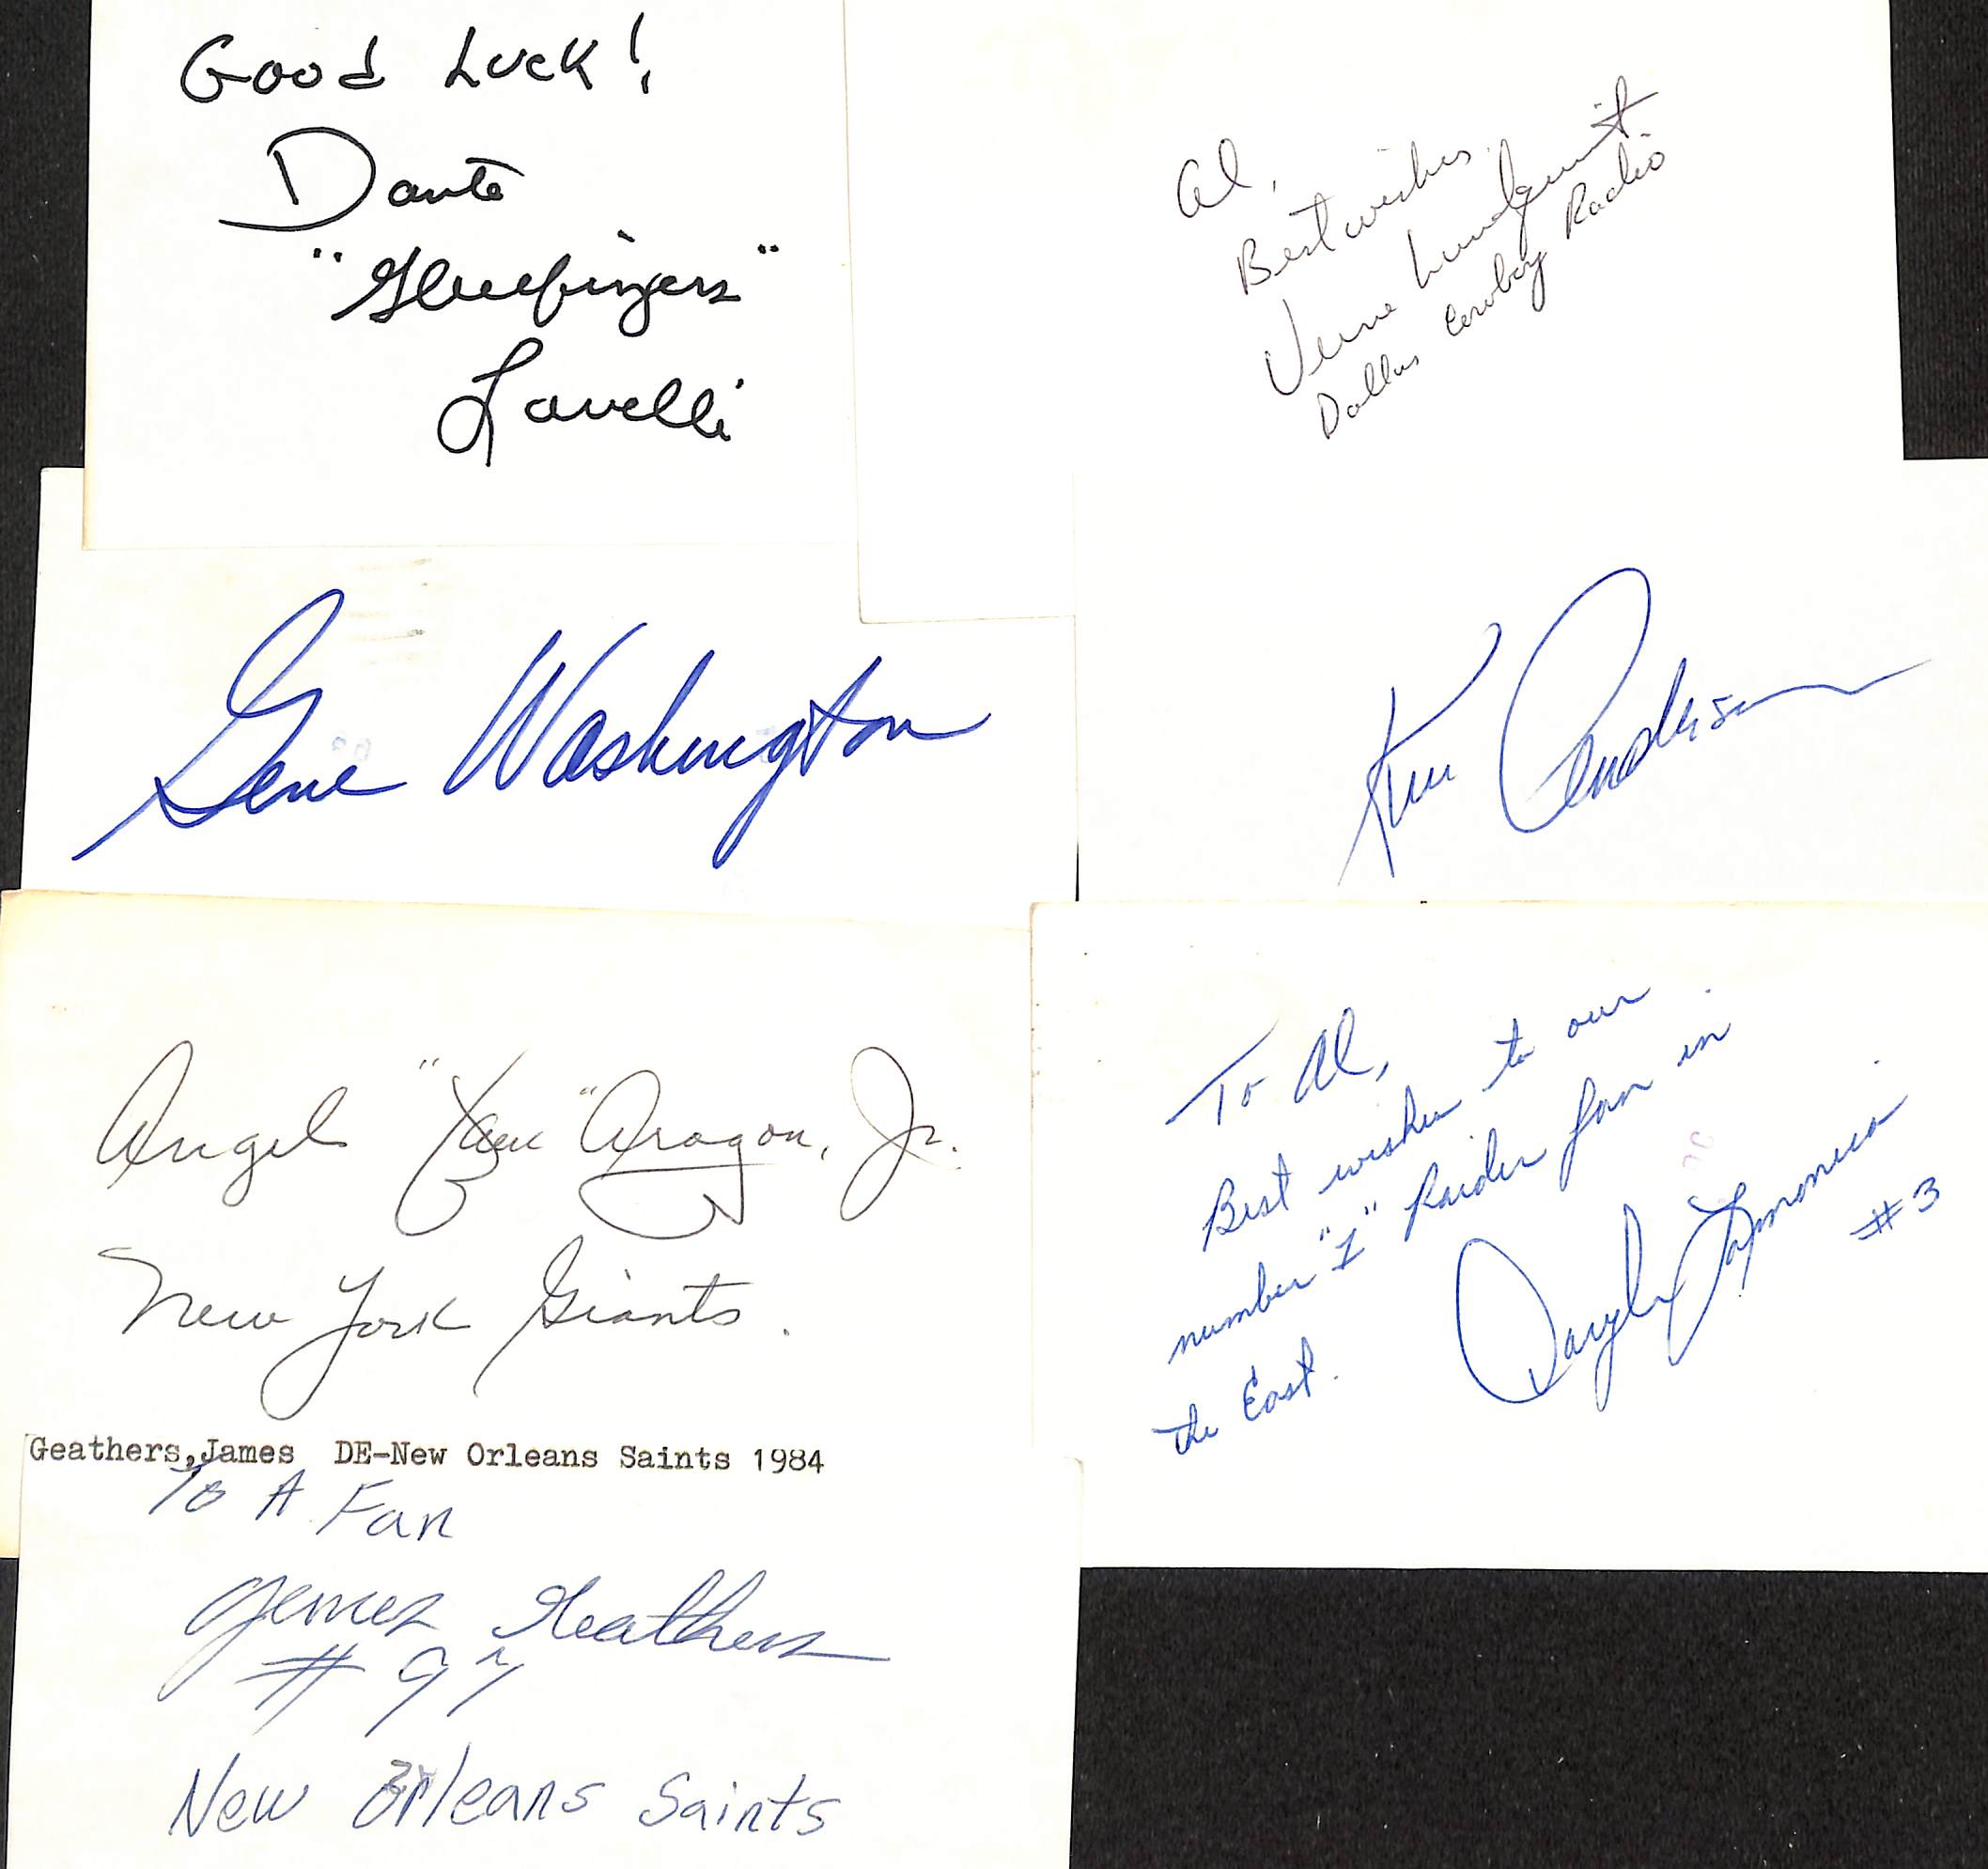 Good Luck!
Dante
"Gluefingers"
Lavelli
Al,
Best wishes.
Verne Lundquist
Dallas Cowboy Radio
Gene Washington
Ken Anderson
Angel "Aragon, Jr.
New York Giants.
To Al,
Best wishes to our
number "1" Raider fan in
the East.
Daryle Lamonica
#3
Geathers,James DE-New Orleans Saints 1984
To A Fan
James Geathers
# 97
New Orleans Saints